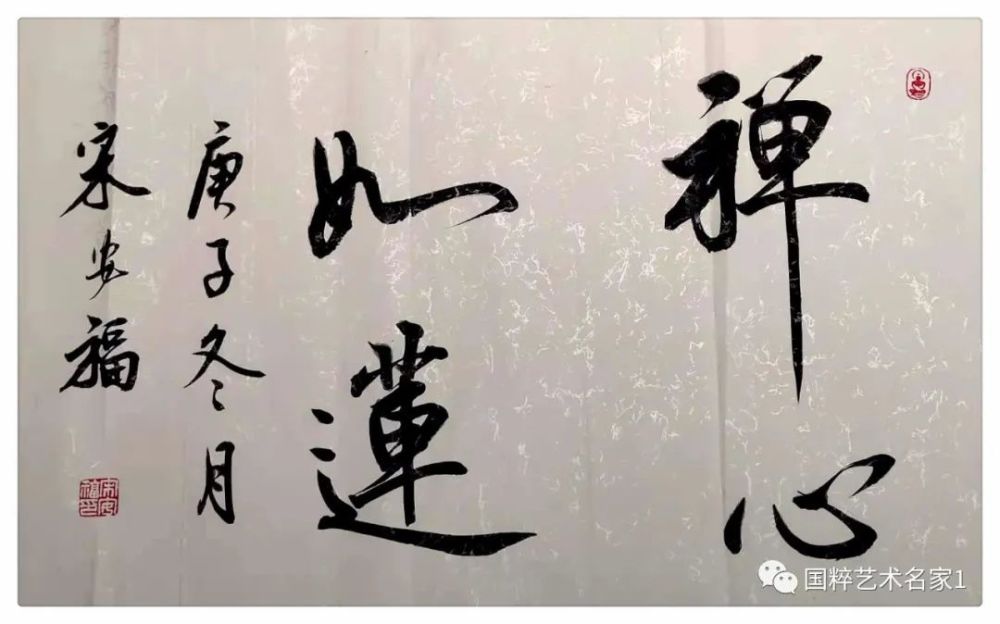 禅心
如蓮
庚子冬月
宋安福
宋安福印
国粹艺术名家1